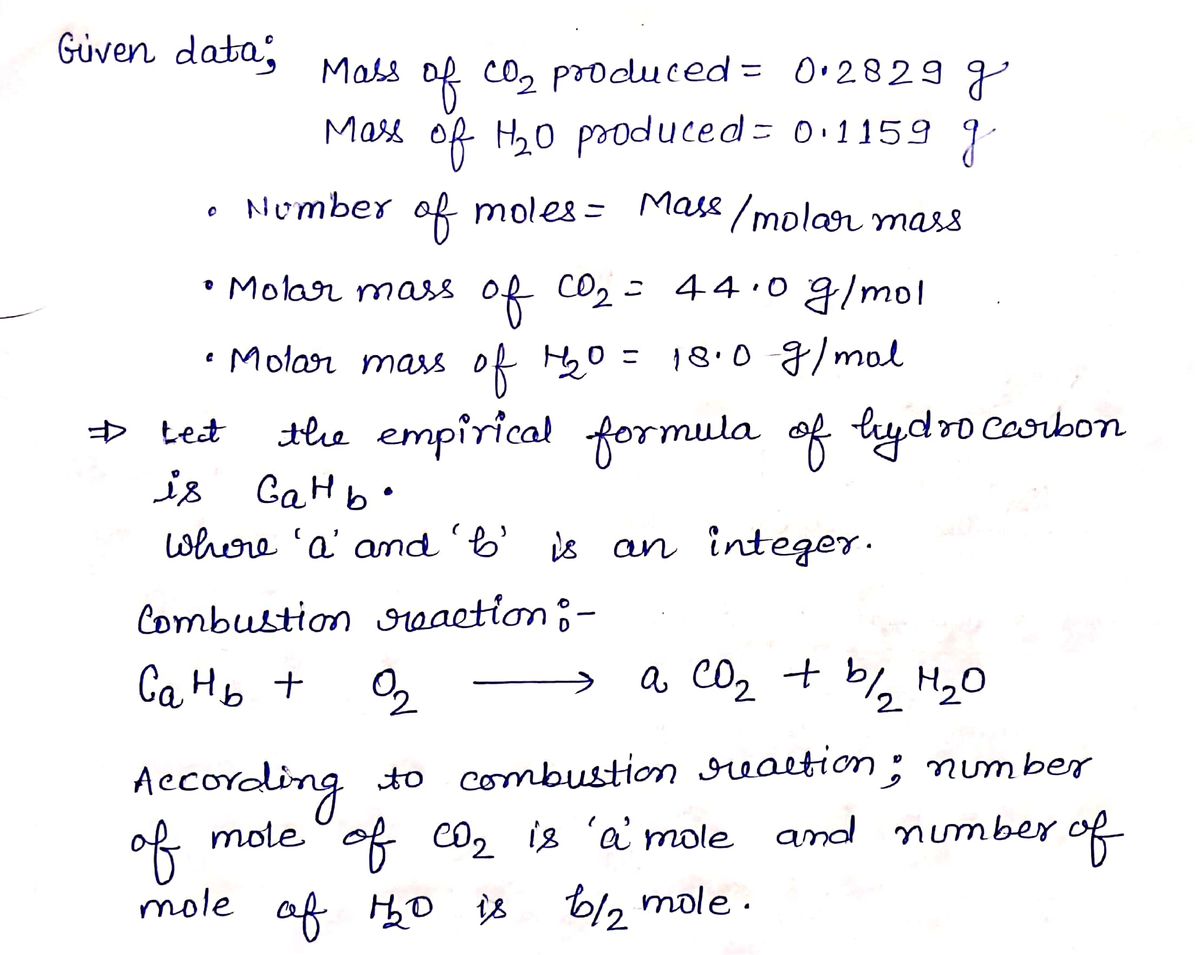 Given data;
Mass of CO₂ produced = 0.2829 g
Mass of H₂O produced = 0.1159 g
• Number of moles = Mass/molar mass
• Molar mass of CO₂ = 44.0 g/mol
• Molar mass of H₂O = 18.0 g/mol
⇒ Let the empirical formula of hydrocarbon
is CaHb.
Where 'a' and 'b' is an integer.
Combustion reaction:-
CaHb + O₂ ⟶ a CO₂ + b/2 H₂O
According to combustion reaction; number
of mole of CO₂ is 'a' mole and number of
mole of H₂O is b/2 mole.